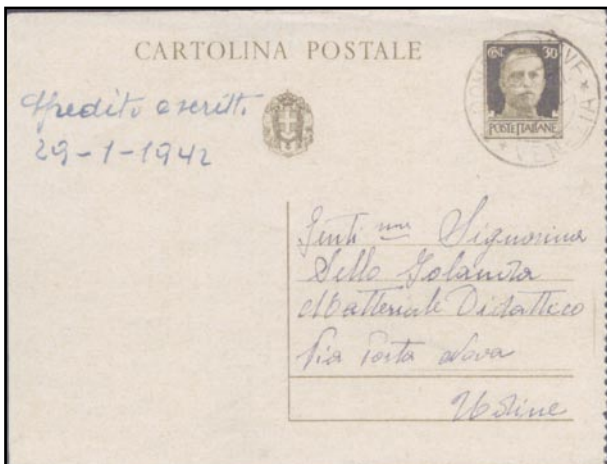 CARTOLINA POSTALE
Cent. 30
POSTE ITALIANE
VENEZIA
Spedito e scritto
29-1-1942
Genti ma Signorina
Sello Jolanda
Matteriale Didattico
Via Posta Nova
Udine